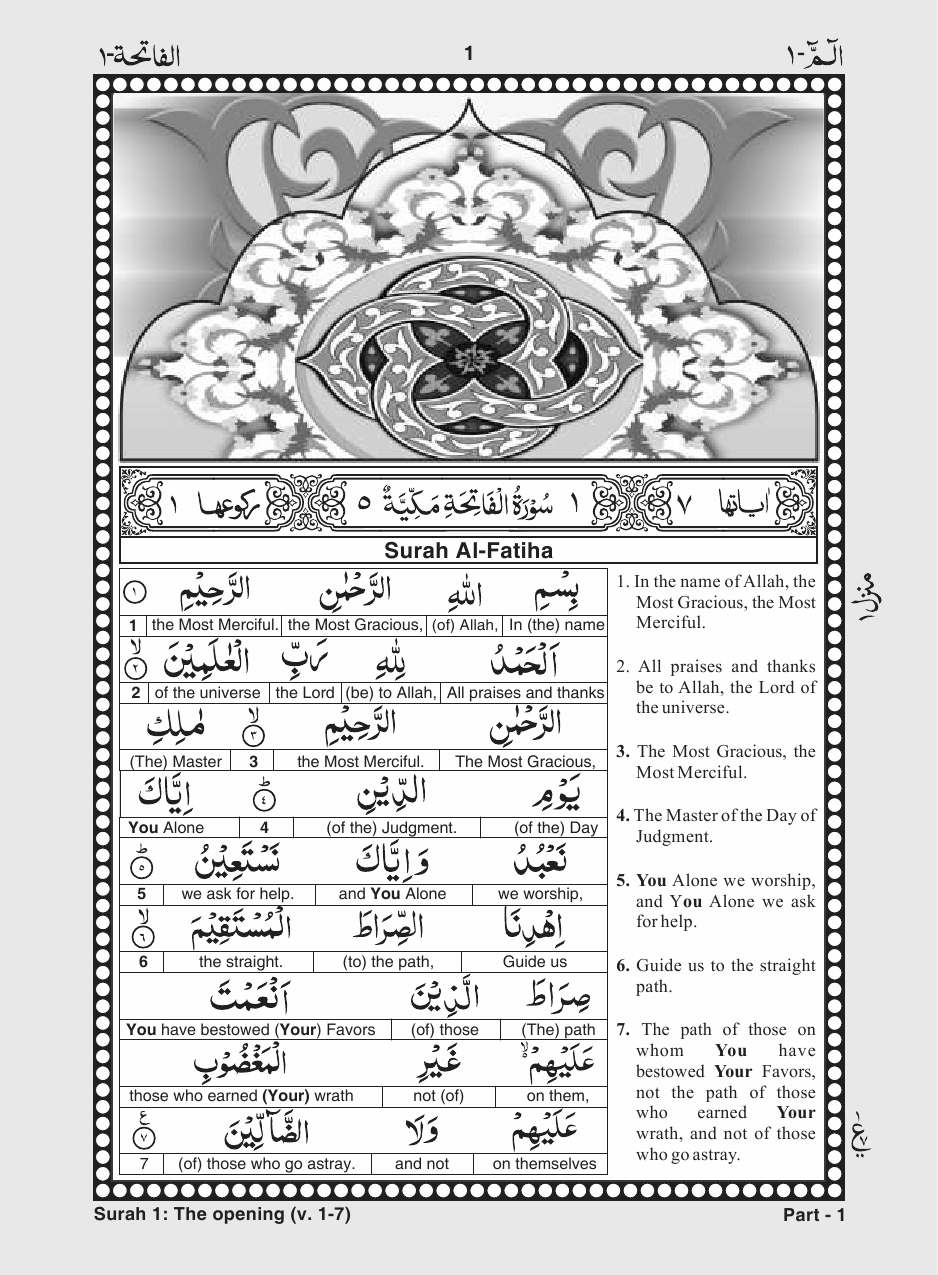 الفاتحة-١
1
الٓـمّٓ-١
اٰیاتها ٧
١ سُوْرَةُ الْفَاتِحَةِ مَكِّيَّةٌ ٥
ركوعها ١
Surah Al-Fatiha
بِسْمِ اللهِ الرَّحْمٰنِ الرَّحِيْمِ ١
1 the Most Merciful. the Most Gracious, (of) Allah, In (the) name
اَلْحَمْدُ لِلّٰهِ رَبِّ الْعٰلَمِيْنَ ۙ ٢
2 of the universe the Lord (be) to Allah, All praises and thanks
الرَّحْمٰنِ الرَّحِيْمِ ۙ ٣ مٰلِكِ
(The) Master 3 the Most Merciful. The Most Gracious,
يَوْمِ الدِّيْنِ ؕ ٤ اِيَّاكَ
You Alone 4 (of the) Judgment. (of the) Day
نَعْبُدُ وَاِيَّاكَ نَسْتَعِيْنُ ؕ ٥
5 we ask for help. and You Alone we worship,
اِهْدِنَا الصِّرَاطَ الْمُسْتَقِيْمَ ۙ ٦
6 the straight. (to) the path, Guide us
صِرَاطَ الَّذِيْنَ اَنْعَمْتَ
You have bestowed (Your) Favors (of) those (The) path
عَلَيْهِمْ ۙ۬ غَيْرِ الْمَغْضُوْبِ
those who earned (Your) wrath not (of) on them,
عَلَيْهِمْ وَلَا الضَّآلِّيْنَ ع ٧
7 (of) those who go astray. and not on themselves
1. In the name of Allah, the
Most Gracious, the Most
Merciful.
2. All praises and thanks
be to Allah, the Lord of
the universe.
3. The Most Gracious, the
Most Merciful.
4. The Master of the Day of
Judgment.
5. You Alone we worship,
and You Alone we ask
for help.
6. Guide us to the straight
path.
7. The path of those on
whom You have
bestowed Your Favors,
not the path of those
who earned Your
wrath, and not of those
who go astray.
منزل ١
Surah 1: The opening (v. 1-7)
Part - 1